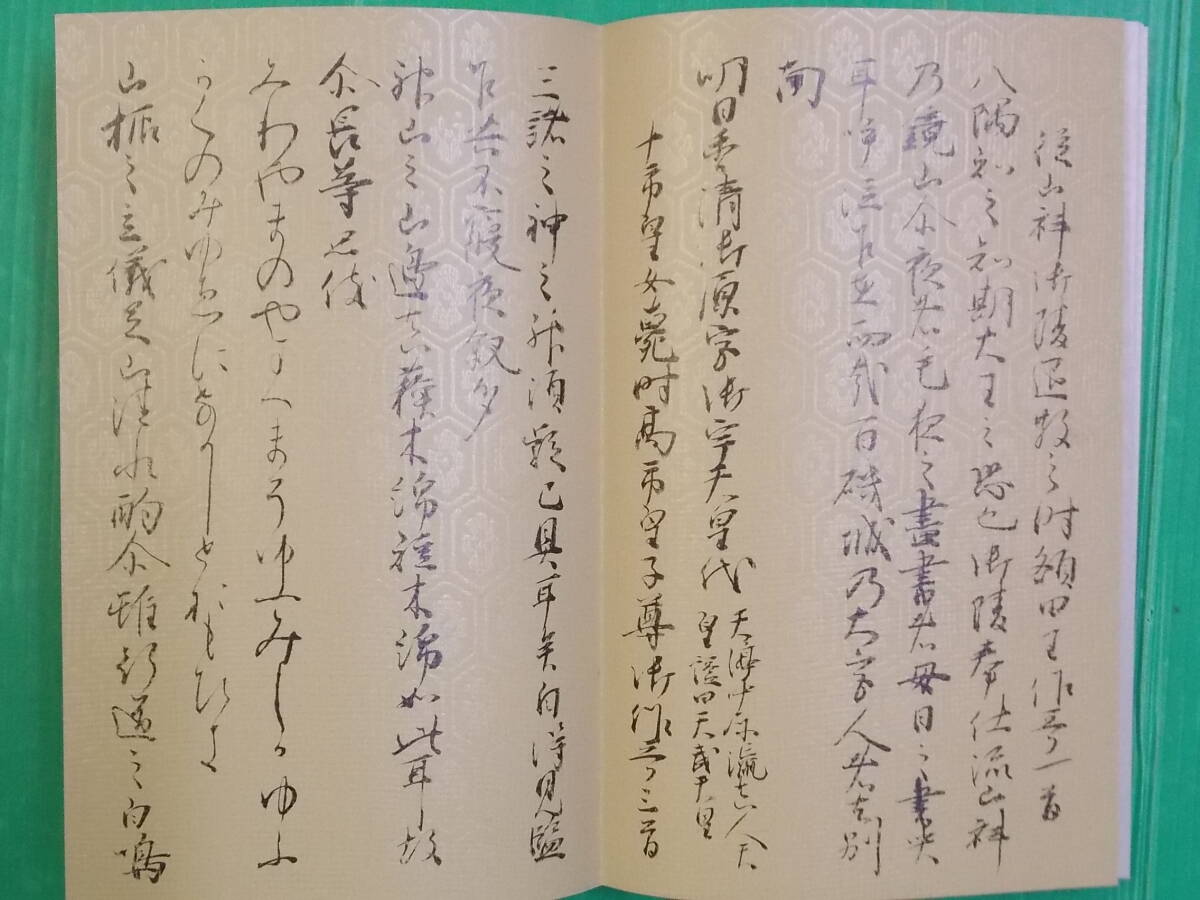 従山科御陵退散之時額田王作歌一首
八隅知之和期大王之恐也御陵奉仕流山科
乃鏡山尓夜者毛夜之盡晝者母日之盡哭
耳呼泣乍在而哉百礒城乃大宮人者去別
南
明日香清御原宮御宇天皇代 天渟中原瀛真人天
皇諡曰天武天皇
十市皇女薨時高市皇子尊御作歌三首
三諸之神之神須疑已具耳矣自得見監
乍共不寝夜叙多
神山之山邊真蘇木綿短木綿如此耳故
尓長等思伎
みわやまのやまへまそゆふみしかゆふ
かくのみゆゑになかしとおもひき
山振之立儀足山清水酌尓雖行道之白鳴